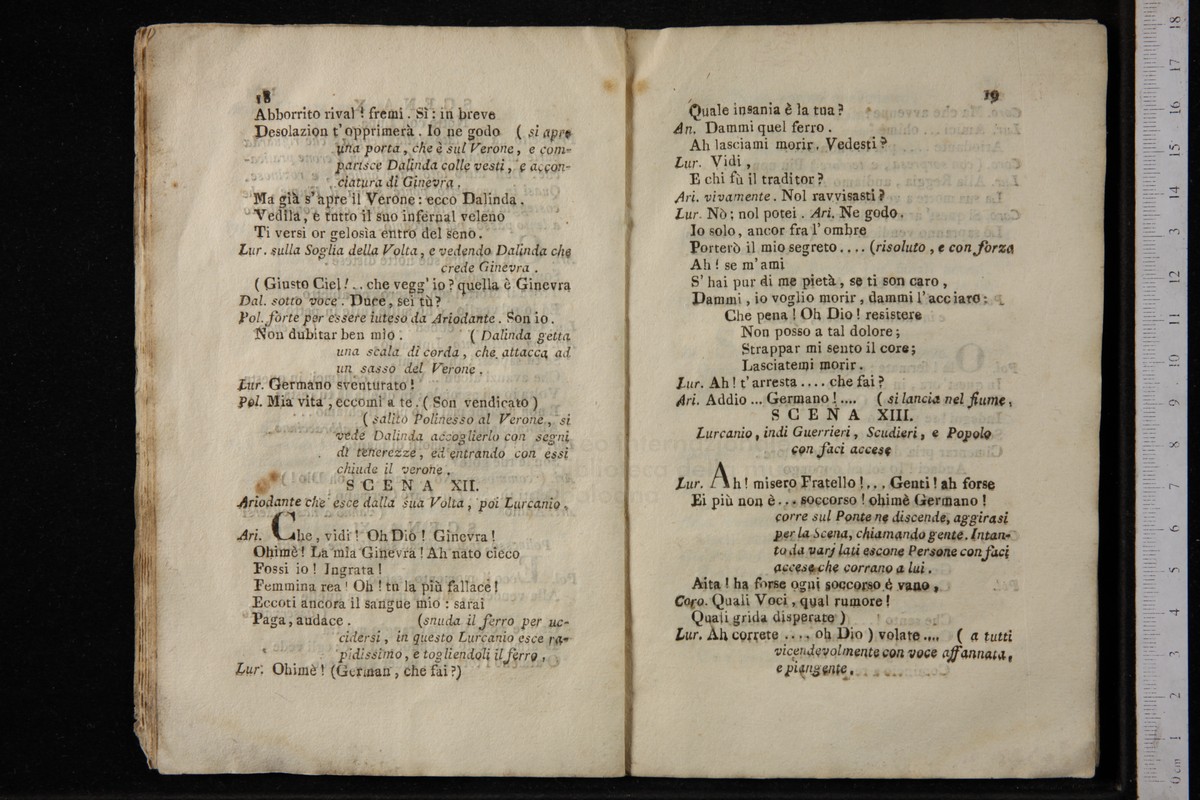 18
Abborrito rival! fremi. Sì: in breve
Desolazion t'opprimerà. Io ne godo ( si apre
una porta, che è sul Verone, e com-
parisce Dalinda colle vesti, e accon-
ciatura di Ginevra.
Ma già s'apre il Verone: ecco Dalinda.
Vedila, e tutto il suo infernal veleno
Ti versi or gelosia entro del seno.
Lur. sulla Soglia della Volta, e vedendo Dalinda che
crede Ginevra.
( Giusto Ciel!.. che vegg'io? quella è Ginevra
Dal. sotto voce. Duce, sei tù?
Pol. forte per essere inteso da Ariodante. Son io.
Non dubitar ben mio. ( Dalinda getta
una scala di corda, che attacca ad
un sasso del Verone.
Lur. Germano sventurato!
Pol. Mia vita, eccomi a te. ( Son vendicato )
( salito Polinesso al Verone, si
vede Dalinda accoglierlo con segni
di tenerezze, ed entrando con essi
chiude il verone.
SCENA XII.
Ariodante che esce dalla sua Volta, poi Lurcanio.
Ari. Che, vidi! Oh Dio! Ginevra!
Ohimè! La mia Ginevra! Ah nato cieco
Fossi io! Ingrata!
Femmina rea! Oh! tu la più fallace!
Eccoti ancora il sangue mio: sarai
Paga, audace. (snuda il ferro per uc-
cidersi, in questo Lurcanio esce ra-
pidissimo, e togliendoli il ferro,
Lur. Ohimè! (German, che fai?)
19
Quale insania è la tua?
An. Dammi quel ferro.
Ah lasciami morir. Vedesti?
Lur. Vidi,
E chi fù il traditor?
Ari. vivamente. Nol ravvisasti?
Lur. Nò; nol potei. Ari. Ne godo.
Io solo, ancor fra l'ombre
Porterò il mio segreto.... (risoluto, e con forza
Ah! se m'ami
S'hai pur di me pietà, se ti son caro,
Dammi, io voglio morir, dammi l'acciaro:
Che pena! Oh Dio! resistere
Non posso a tal dolore;
Strappar mi sento il core;
Lasciatemi morir.
Lur. Ah! t'arresta.... che fai?
Ari. Addio... Germano!.... ( si lancia nel fiume,
SCENA XIII.
Lurcanio, indi Guerrieri, Scudieri, e Popolo
con faci accese
Lur. Ah! misero Fratello!... Genti! ah forse
Ei più non è... soccorso! ohimè Germano!
corre sul Ponte ne discende, aggirasi
per la Scena, chiamando gente. Intan-
to da varj lati escone Persone con faci
accese che corrano a lui.
Aita! ha forse ogni soccorso è vano,
Coro. Quali Voci, qual rumore!
Quali grida disperate)
Lur. Ah correte.... oh Dio) volate.... ( a tutti
vicendevolmente con voce affannata,
e piangente.